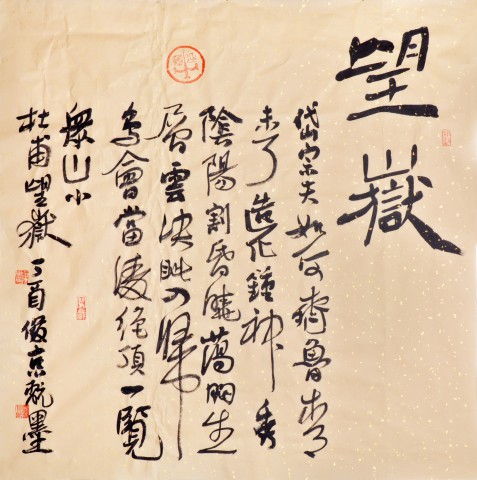 望嶽
岱宗夫如何齊魯青
未了造化鍾神秀
陰陽割昏曉蕩胸生
層雲決眥入歸
鳥會當凌絕頂一覽
衆山小
杜甫望嶽丁酉京墨